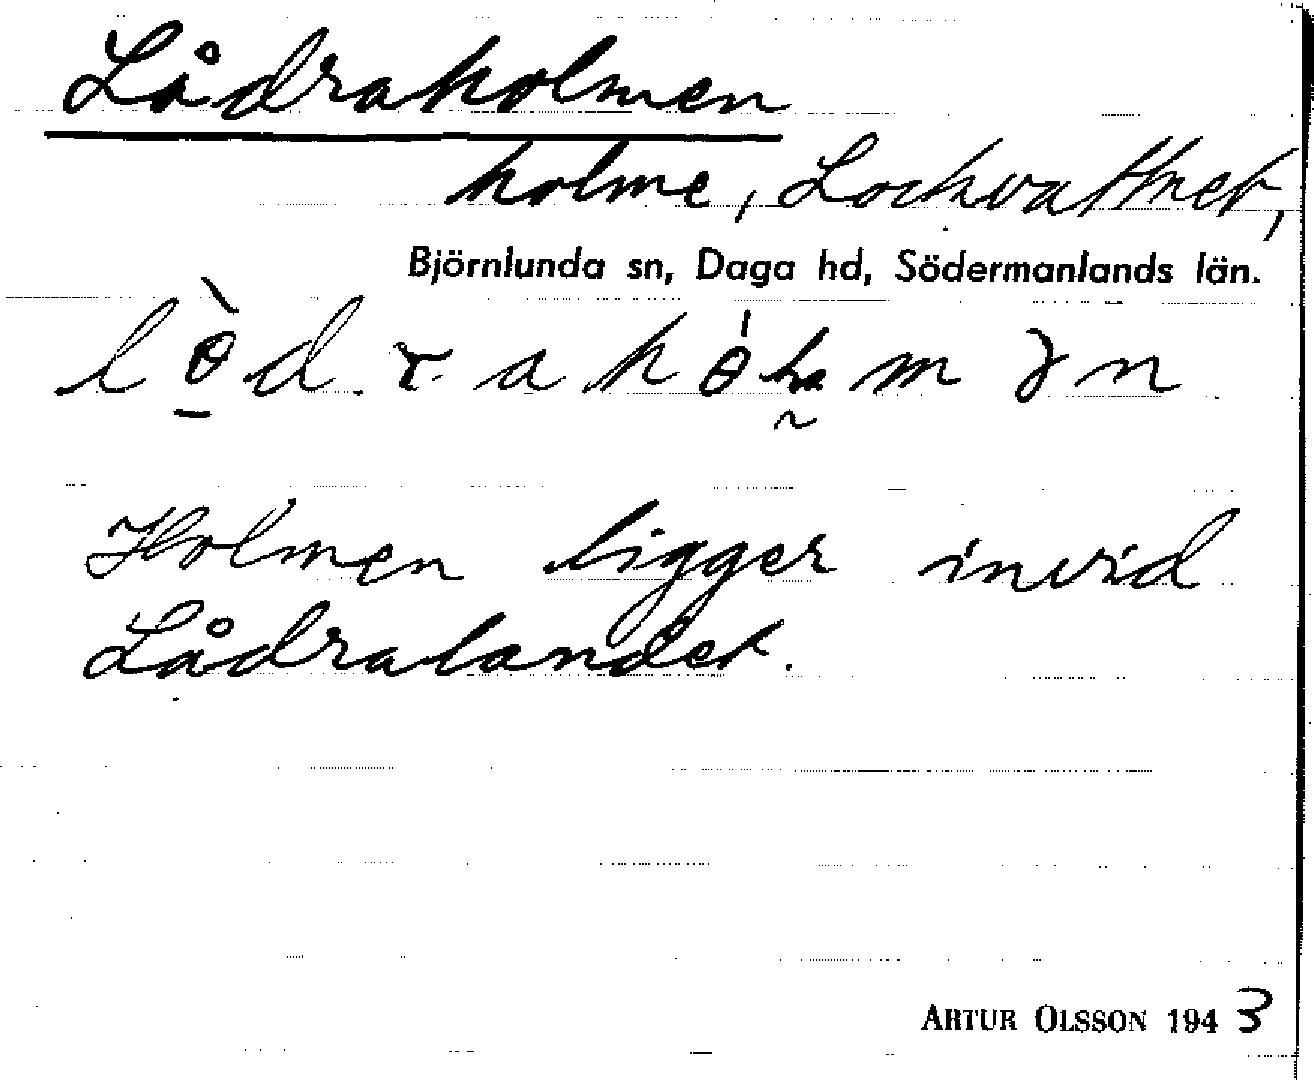 Lådraholmen
holme, Lockvattnet,
Björnlunda sn, Daga hd, Södermanlands län.
Holmen ligger invid
Lådralandet.
ARTUR OLSSON 1943